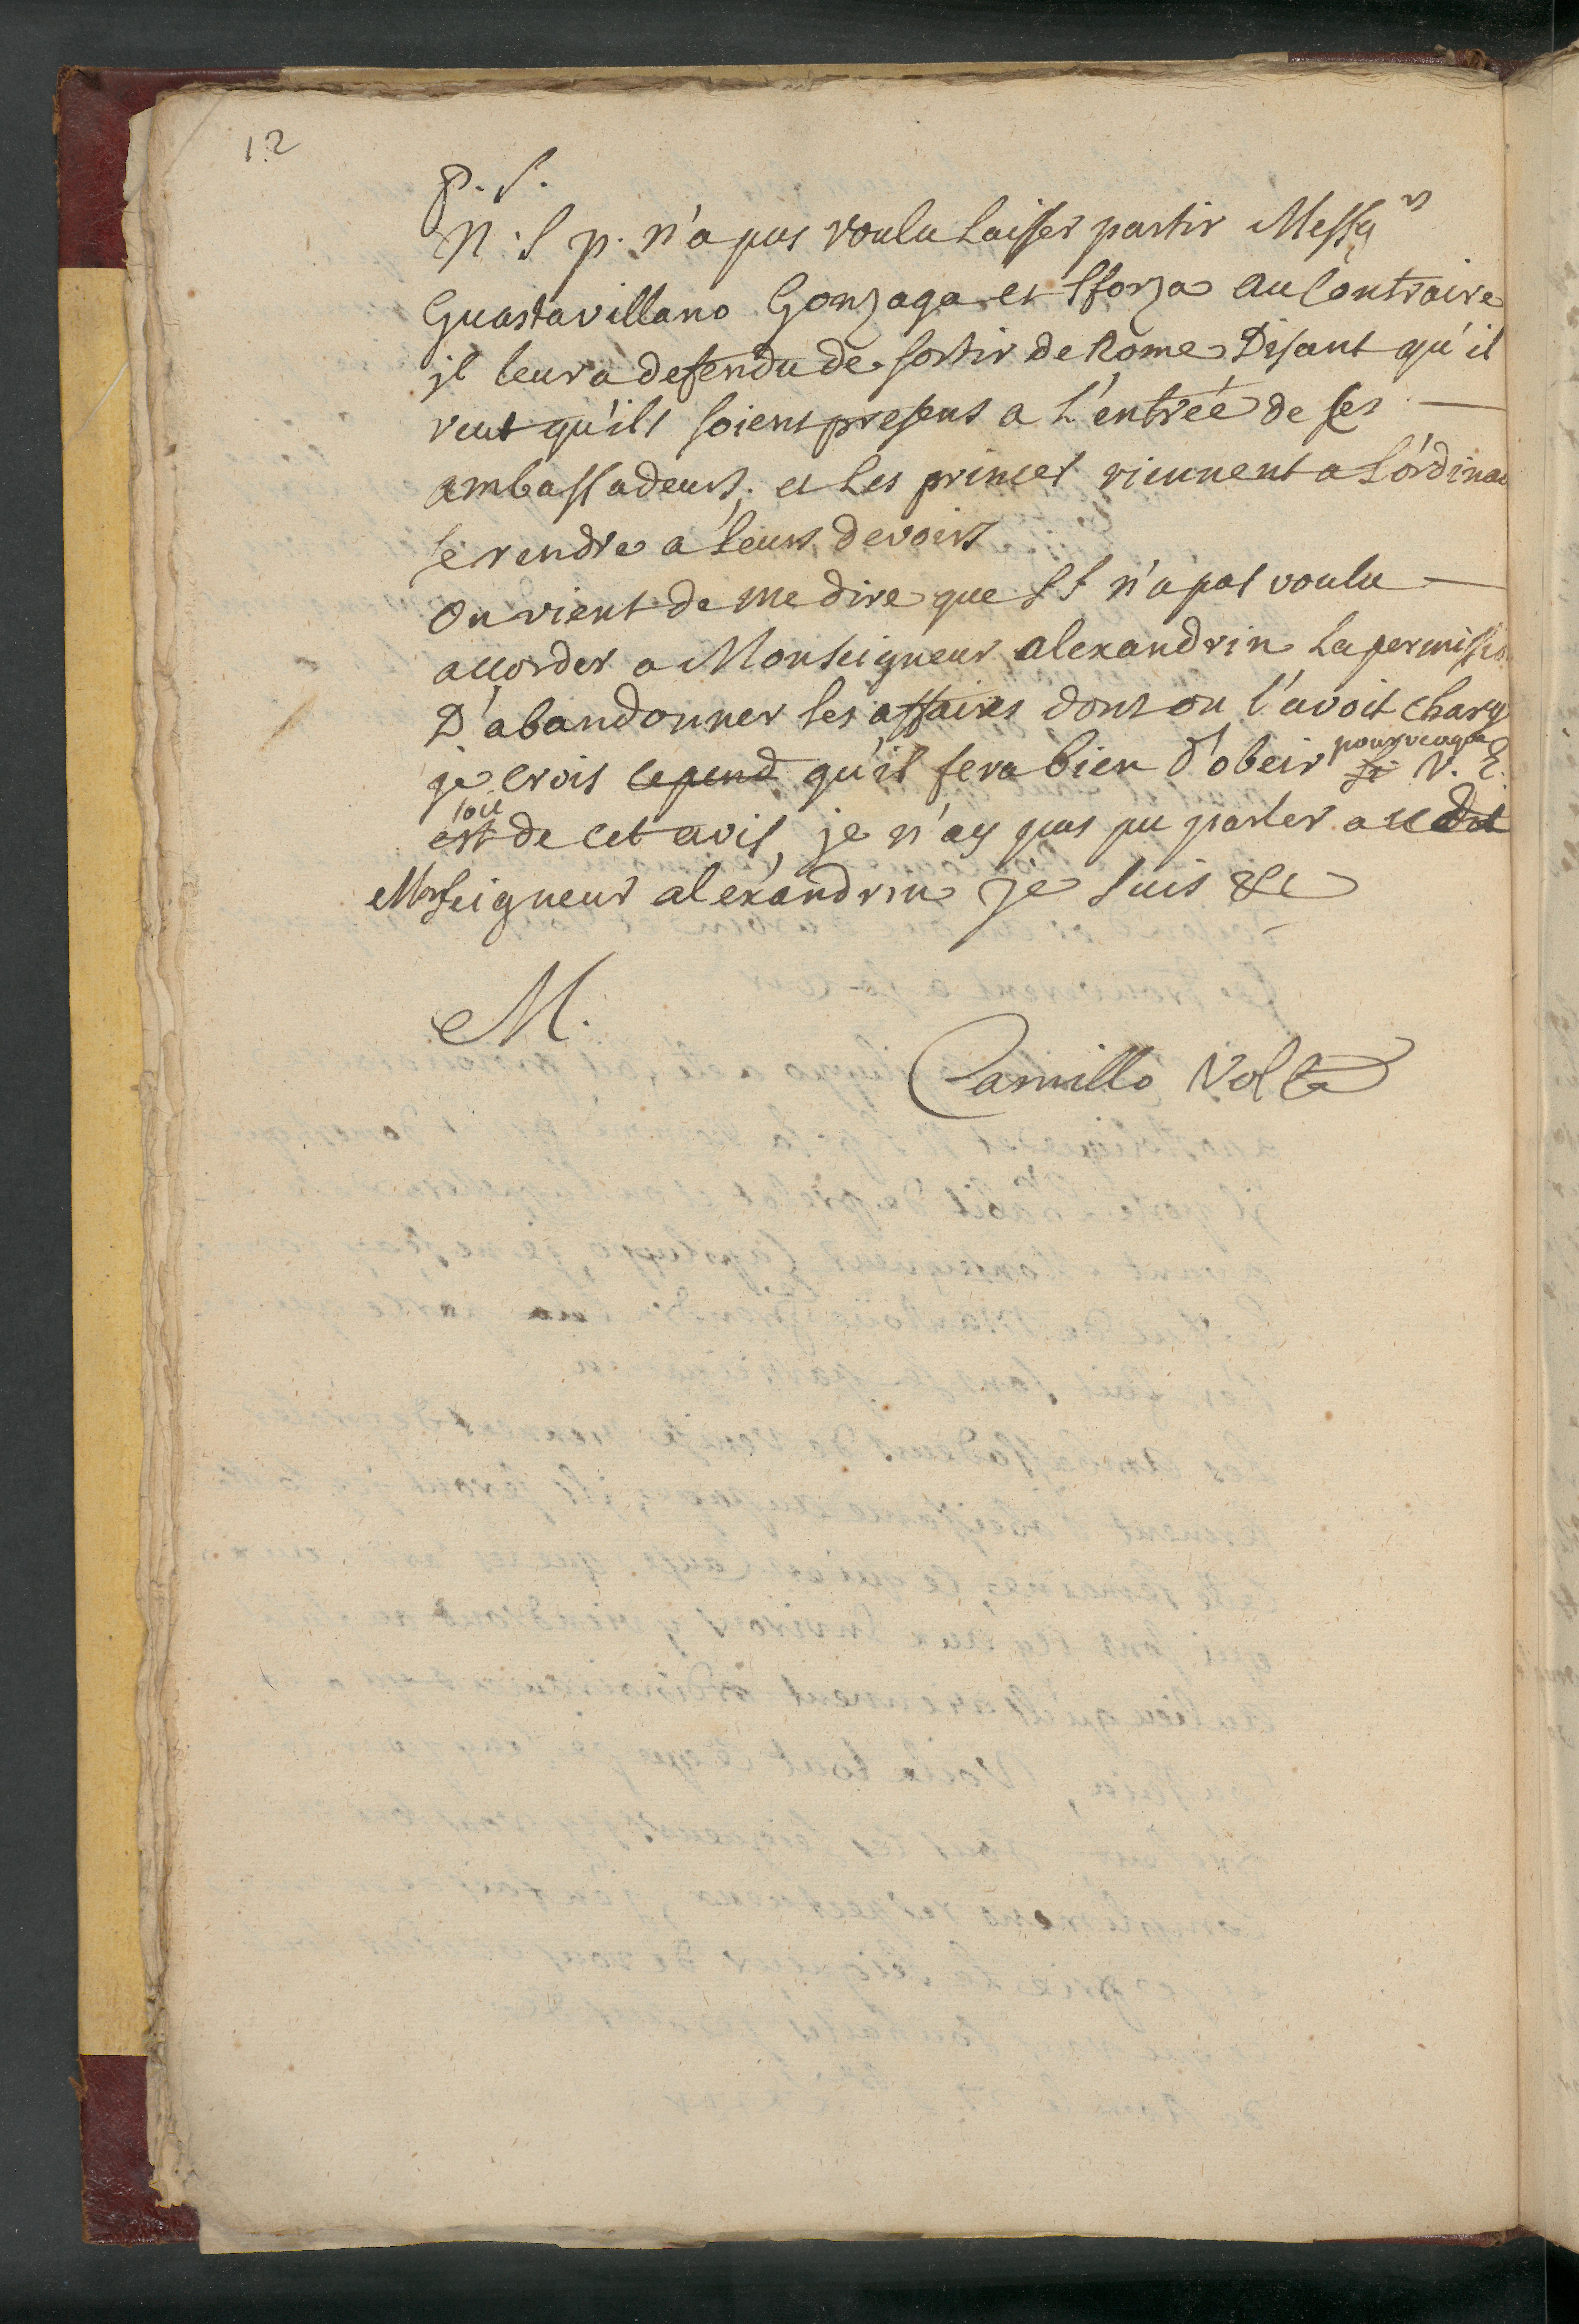 12
P. S.
N. S p. n'a pas voulu laisser partir Messg rs
Guastavillano Gonzaga et Sforza au contraire
il leur a defendu de sortir de Rome Disant qu'il
veut qu'ils soient presens a L'entrée de ses
ambassadeurs. et les princes viennent a L'ordinai
se rendre a leurs devoirs
On vient de me dire que SS n'a pas voulu
accorder a Monseigneur alexandrin la permissio
D'abandonner les affaires dont on l'avoit charg
je crois cepend qu'il fera bien d'obeir si pourvuque V. E.
est soit de cet avis, je n'ay pas pu parler audit
Monseigneur alexandrin je suis &c
M.
Camillo Volta